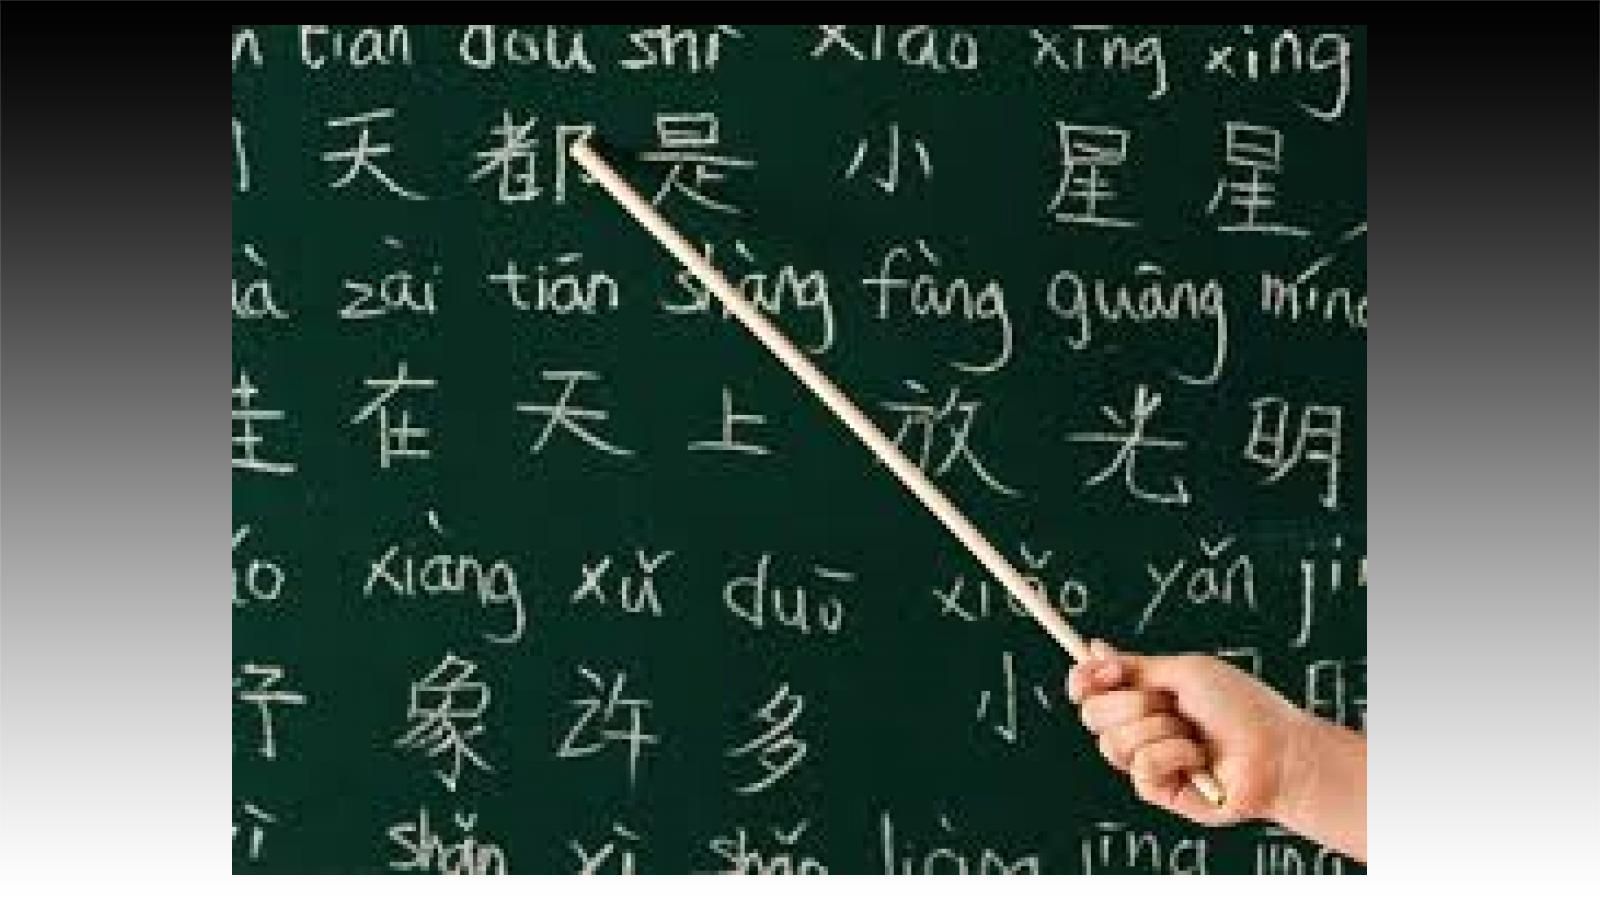 tiān dōu shì xiǎo xīng xing
天 都 是 小 星 星
zài tiān shàng fàng guāng míng
挂 在 天 上 放 光 明
xiàng xǔ duō xiǎo yǎn
好 象 许 多 小 眼 睛
shǎn yì shǎn liàng jīng jīng